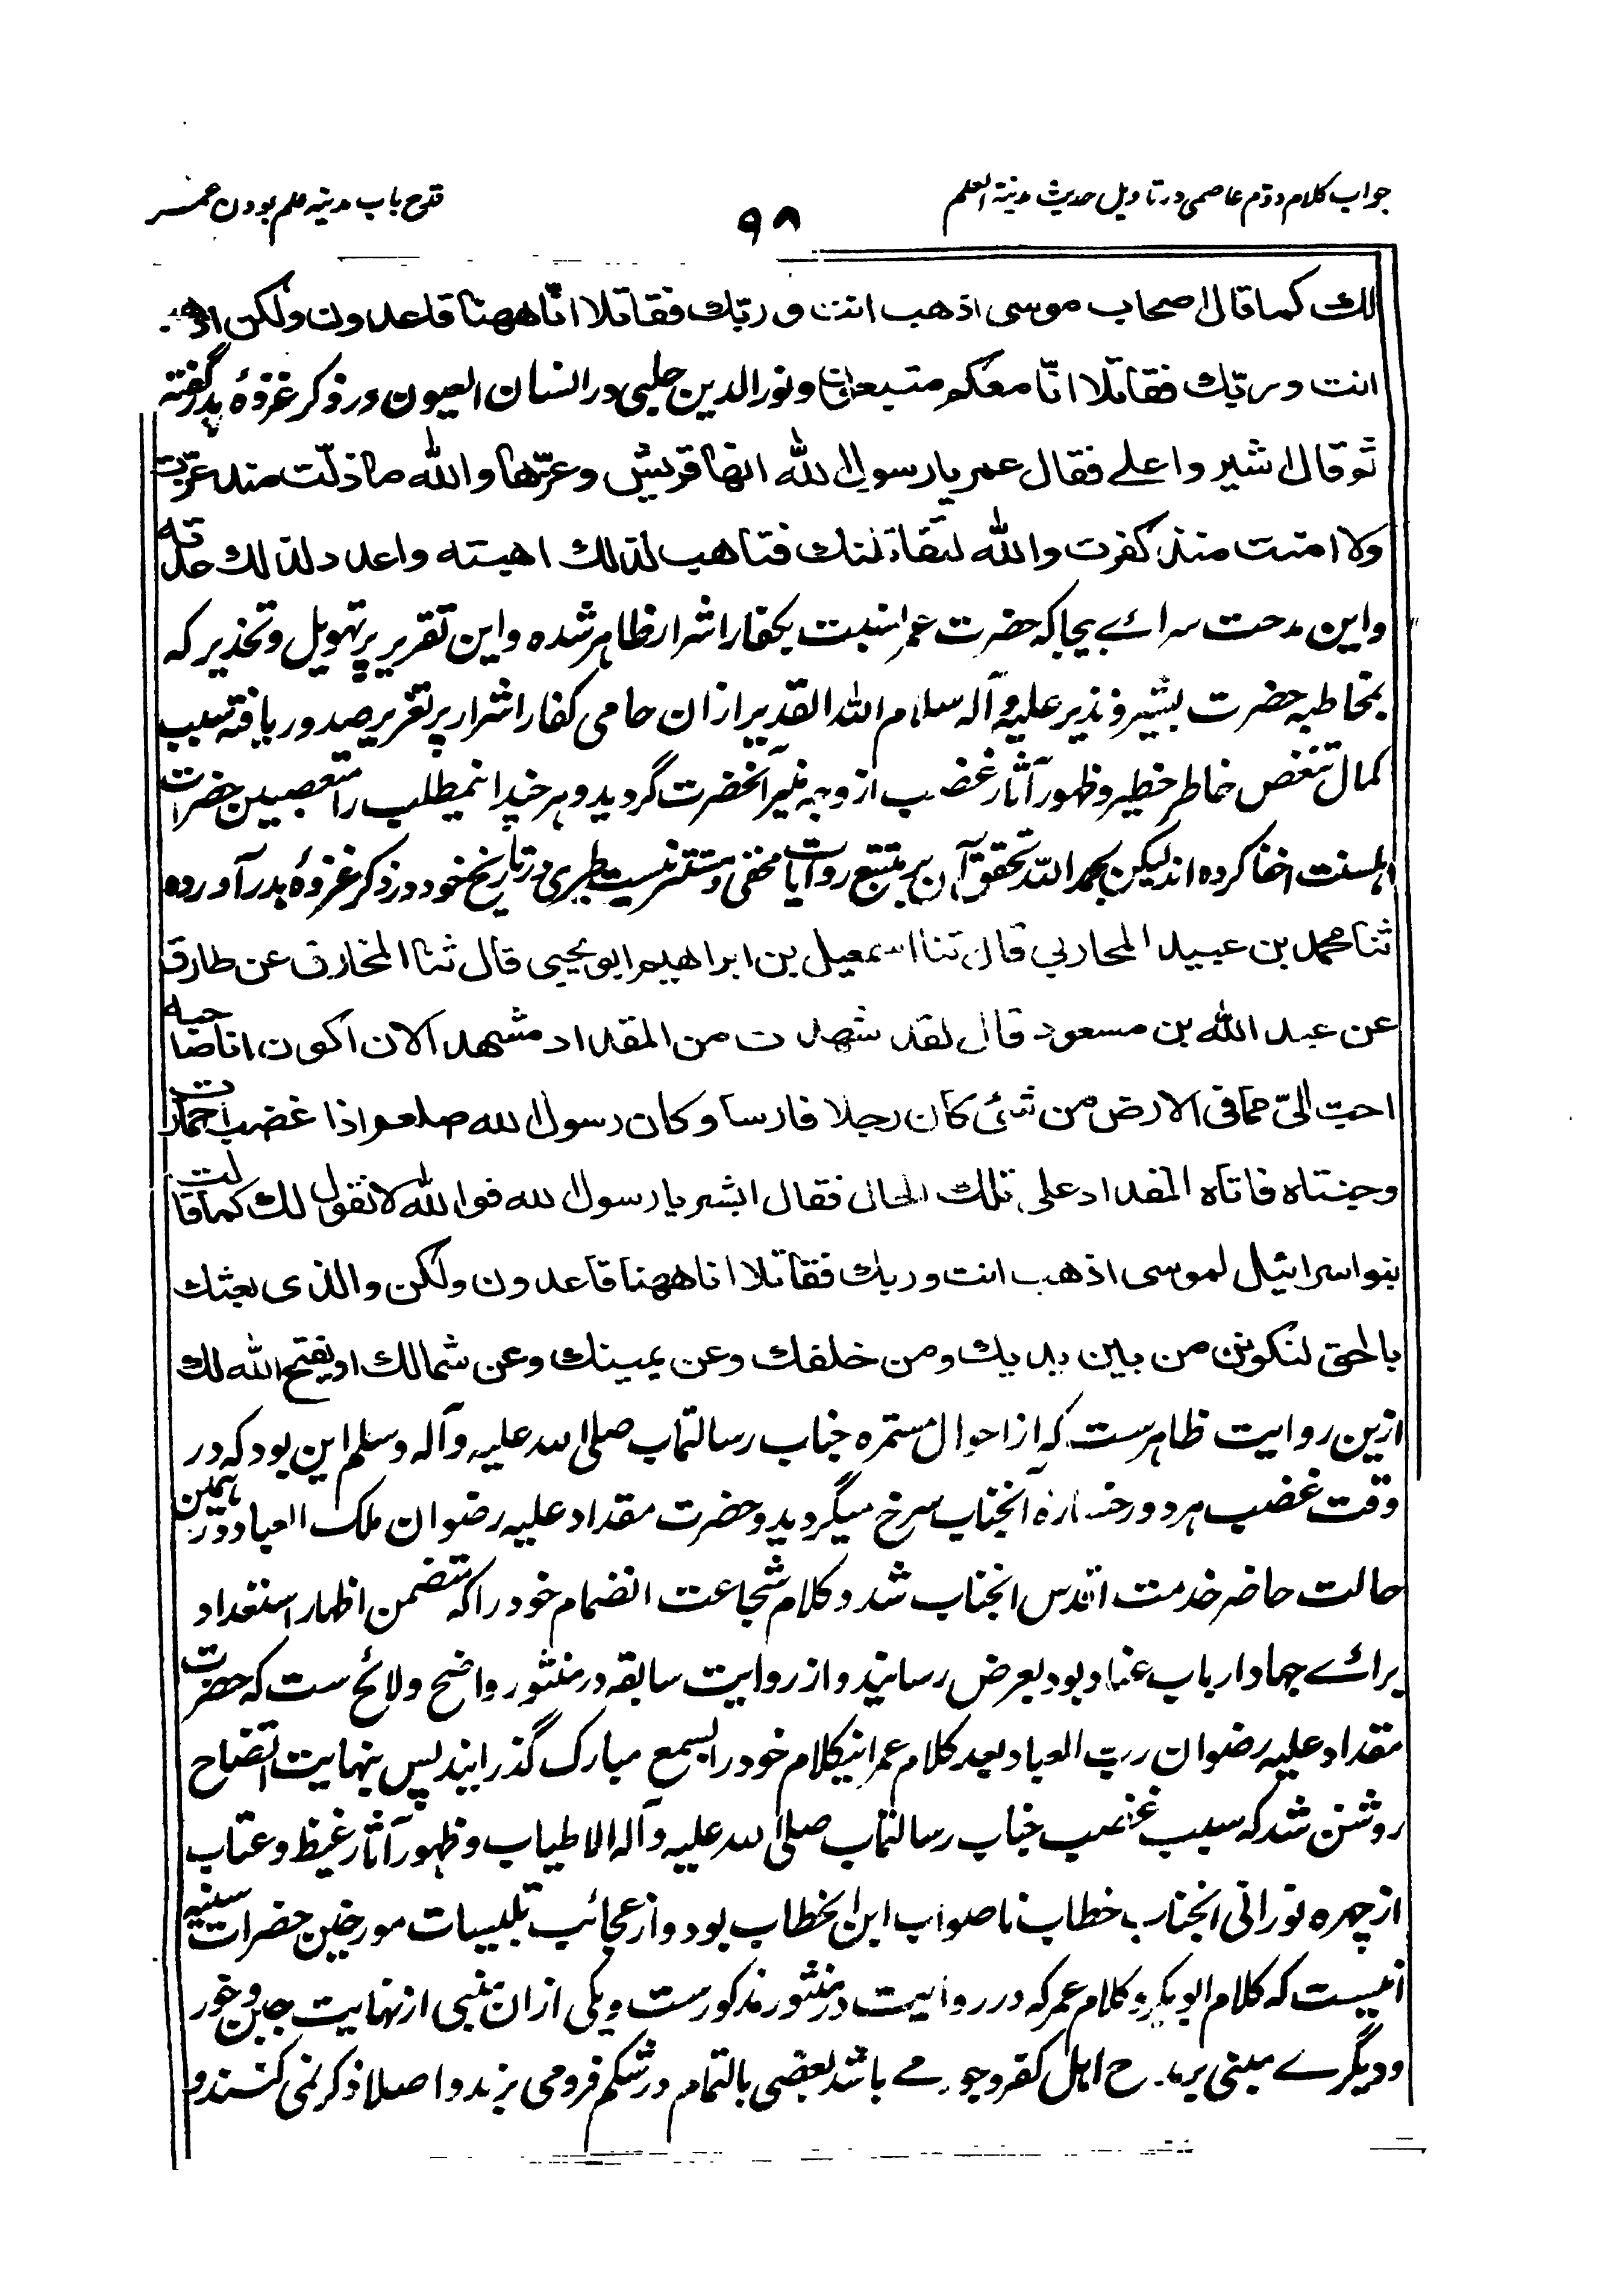 جواب کلام دوّم عاصمی در تاویل حدیث مدینة العلم
۹۸
قدح باب مدینه علم بودن عمر
لك كما قال اصحاب موسى اذهب انت و ربّك فقاتلا انّا ههنا قاعدون ولكن اذهب
انت وربّك فقاتلا انّا معكم متبعون و نورالدین حلبی در انسان العیون در ذکر غزوهٔ بدر گفته
ثم قال اشيروا علي فقال عمر يا رسول الله انها قريش وعزّها والله ما ذلّت منذ عزّت
ولا امنت منذ كفرت والله لتقاتلنك فتاهب لذلك اهبته واعدد لذلك عدته
و این مدحت سرائے بیجا که حضرت عمر را نسبت بکفار اشرار ظاهر شده و این تقریر پر تهویل و تحذیر که
بمخاطبه حضرت بشیر و نذیر علیه و آله سلام الله القدیر ازان حامی کفار اشرار پر تغریر صدور یافته سبب
کمال تنغص خاطر خطیر و ظهور آثار غضب از وجه منیر آنحضرت گردید و هر چند این مطلب را متعصبین حضرات
اهلسنت اخفا کرده اند لیکن بحمد الله تحقق آن بر متتبع روایات مخفی و مستتر نیست طبری در تاریخ خود در ذکر غزوهٔ بدر آورده
ثنا محمد بن عبيد المحاربي قال ثنا اسمعيل بن ابراهيم ابو يحيى قال ثنا المخارق عن طارق
عن عبد الله بن مسعود قال لقد شهدت من المقداد مشهدا لان اكون انا صاحبه
احبّ اليّ مما في الارض من شئ كان رجلا فارسا وكان رسول الله صلعم اذا غضب احمارت
وجنتاه فاتاه المقداد على تلك الحال فقال ابشر يا رسول الله فوالله لا نقول لك كما قالت
بنو اسرائيل لموسى اذهب انت وربك فقاتلا انا ههنا قاعدون ولكن والذى بعثك
بالحق لنكونن من بين يديك ومن خلفك وعن يمينك وعن شمالك او يفتح الله لك
ازین روایت ظاهرست که از احوال مستمره جناب رسالتمآب صلی الله علیه و آله وسلم این بود که در
وقت غضب هر دو رخساره آنجناب سرخ میگردید و حضرت مقداد علیه رضوان ملک العباد در همین
حالت حاضر خدمت اقدس آنجناب شد و کلام شجاعت انضمام خود را که متضمن اظهار استعداد
برائے جهاد ارباب عناد بود بعرض رسانید و از روایت سابقه در منثور واضح و لائح ست که حضرت
مقداد علیه رضوان ربّ العباد بعد کلام عمر اینکلام خود را بسمع مبارک گذرانید پس بنهایت اتضاح
روشن شد که سبب غضب جناب رسالتمآب صلی الله علیه و آله الاطیاب و ظهور آثار غیظ و عتاب
از چهره نورانی آنجناب خطاب ناصواب ابن الخطاب بود و از عجائب تلبیسات مورخین حضرات سنیه
اینست که کلام ابوبکر و کلام عمر که در روایت در منثور مذکورست و یکی ازان منبی از نهایت جبن و خور
و دیگرے مبنی بر مدح اهل کفر و جور مے باشد بعضی بالتمام در شکم فرو می برند و اصلا ذکر نمی کنند و